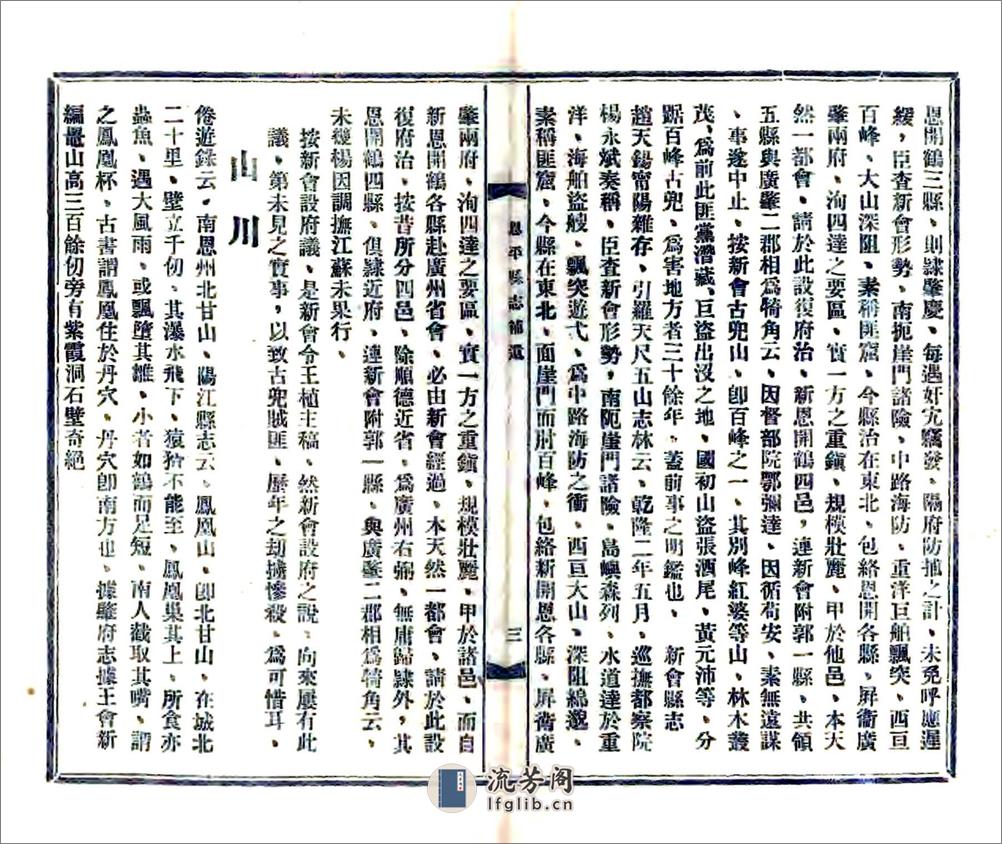 恩開鶴三縣、則隸肇慶、每遇奸宄竊發、隔府防捕之計、未免呼應遲
緩、臣査新會形勢、南扼崖門諸險、中路海防、重洋巨舶飄突、西亘
百峰、大山深阻、素稱匪窟、今縣治在東北、包絡恩開各縣、屏衞廣
肇兩府、洵四達之要區、實一方之重鎭、規模壯麗、甲於他邑、本天
然一都會、請於此設復府治、新恩開鶴四邑、連新會附郭一縣、共領
五縣與廣肇二郡相爲犄角云、因督部院鄂彌達、因循苟安、素無遠謀
、事遂中止、按新會古兜山、卽百峰之一、其別峰紅婆等山、林木叢
茂、爲前此匪黨潛藏、巨盜出沒之地、國初山盜張酒尾、黃元沛等、分
踞百峰古兜、爲害地方者三十餘年、蓋前事之明鑑也、　新會縣志
趙天錫甯陽雜存、引羅天尺五山志林云、乾隆二年五月、巡撫都察院
楊永斌奏稱、臣査新會形勢、南阨崖門諸險、島嶼森列、水道達於重
洋、海舶盜艘、飄突遊弋、爲中路海防之衝、西亘大山、深阻綿邈、
素稱匪窟、今縣在東北、面崖門而肘百峰、包絡新開恩各縣、屏衞廣
恩平縣志補遺
三
肇兩府、洵四達之要區、實一方之重鎭、規模壯麗、甲於諸邑、而自
新恩開鶴各縣赴廣州省會、必由新會經過、本天然一都會、請於此設
復府治、按昔所分四邑、除順德近省、爲廣州右弼、無庸歸隸外、其
恩開鶴四縣、俱隸近府、連新會附郭一縣、與廣肇二郡相爲犄角云、
未幾楊因調撫江蘇未果行、
按新會設府議、是新會令王植主稿、然新會設府之說、向來屢有此
議、第未見之實事、以致古兜賊匪、歷年之劫擄慘殺、爲可惜耳、
山川
倦遊錄云、南恩州北甘山、陽江縣志云、鳳凰山、卽北甘山、在城北
二十里、壁立千仞、其瀑水飛下、猿狖不能至、鳳凰巢其上、所食亦
蟲魚、遇大風雨、或飄墮其雛、小者如鶴而足短、南人截取其嘴、謂
之鳳凰杯、古書謂鳳凰住於丹穴、丹穴卽南方也、據肇府志據王會新
編鼉山高三百餘仞旁有紫霞洞石壁奇絕
流芳阁
lfglib.cn